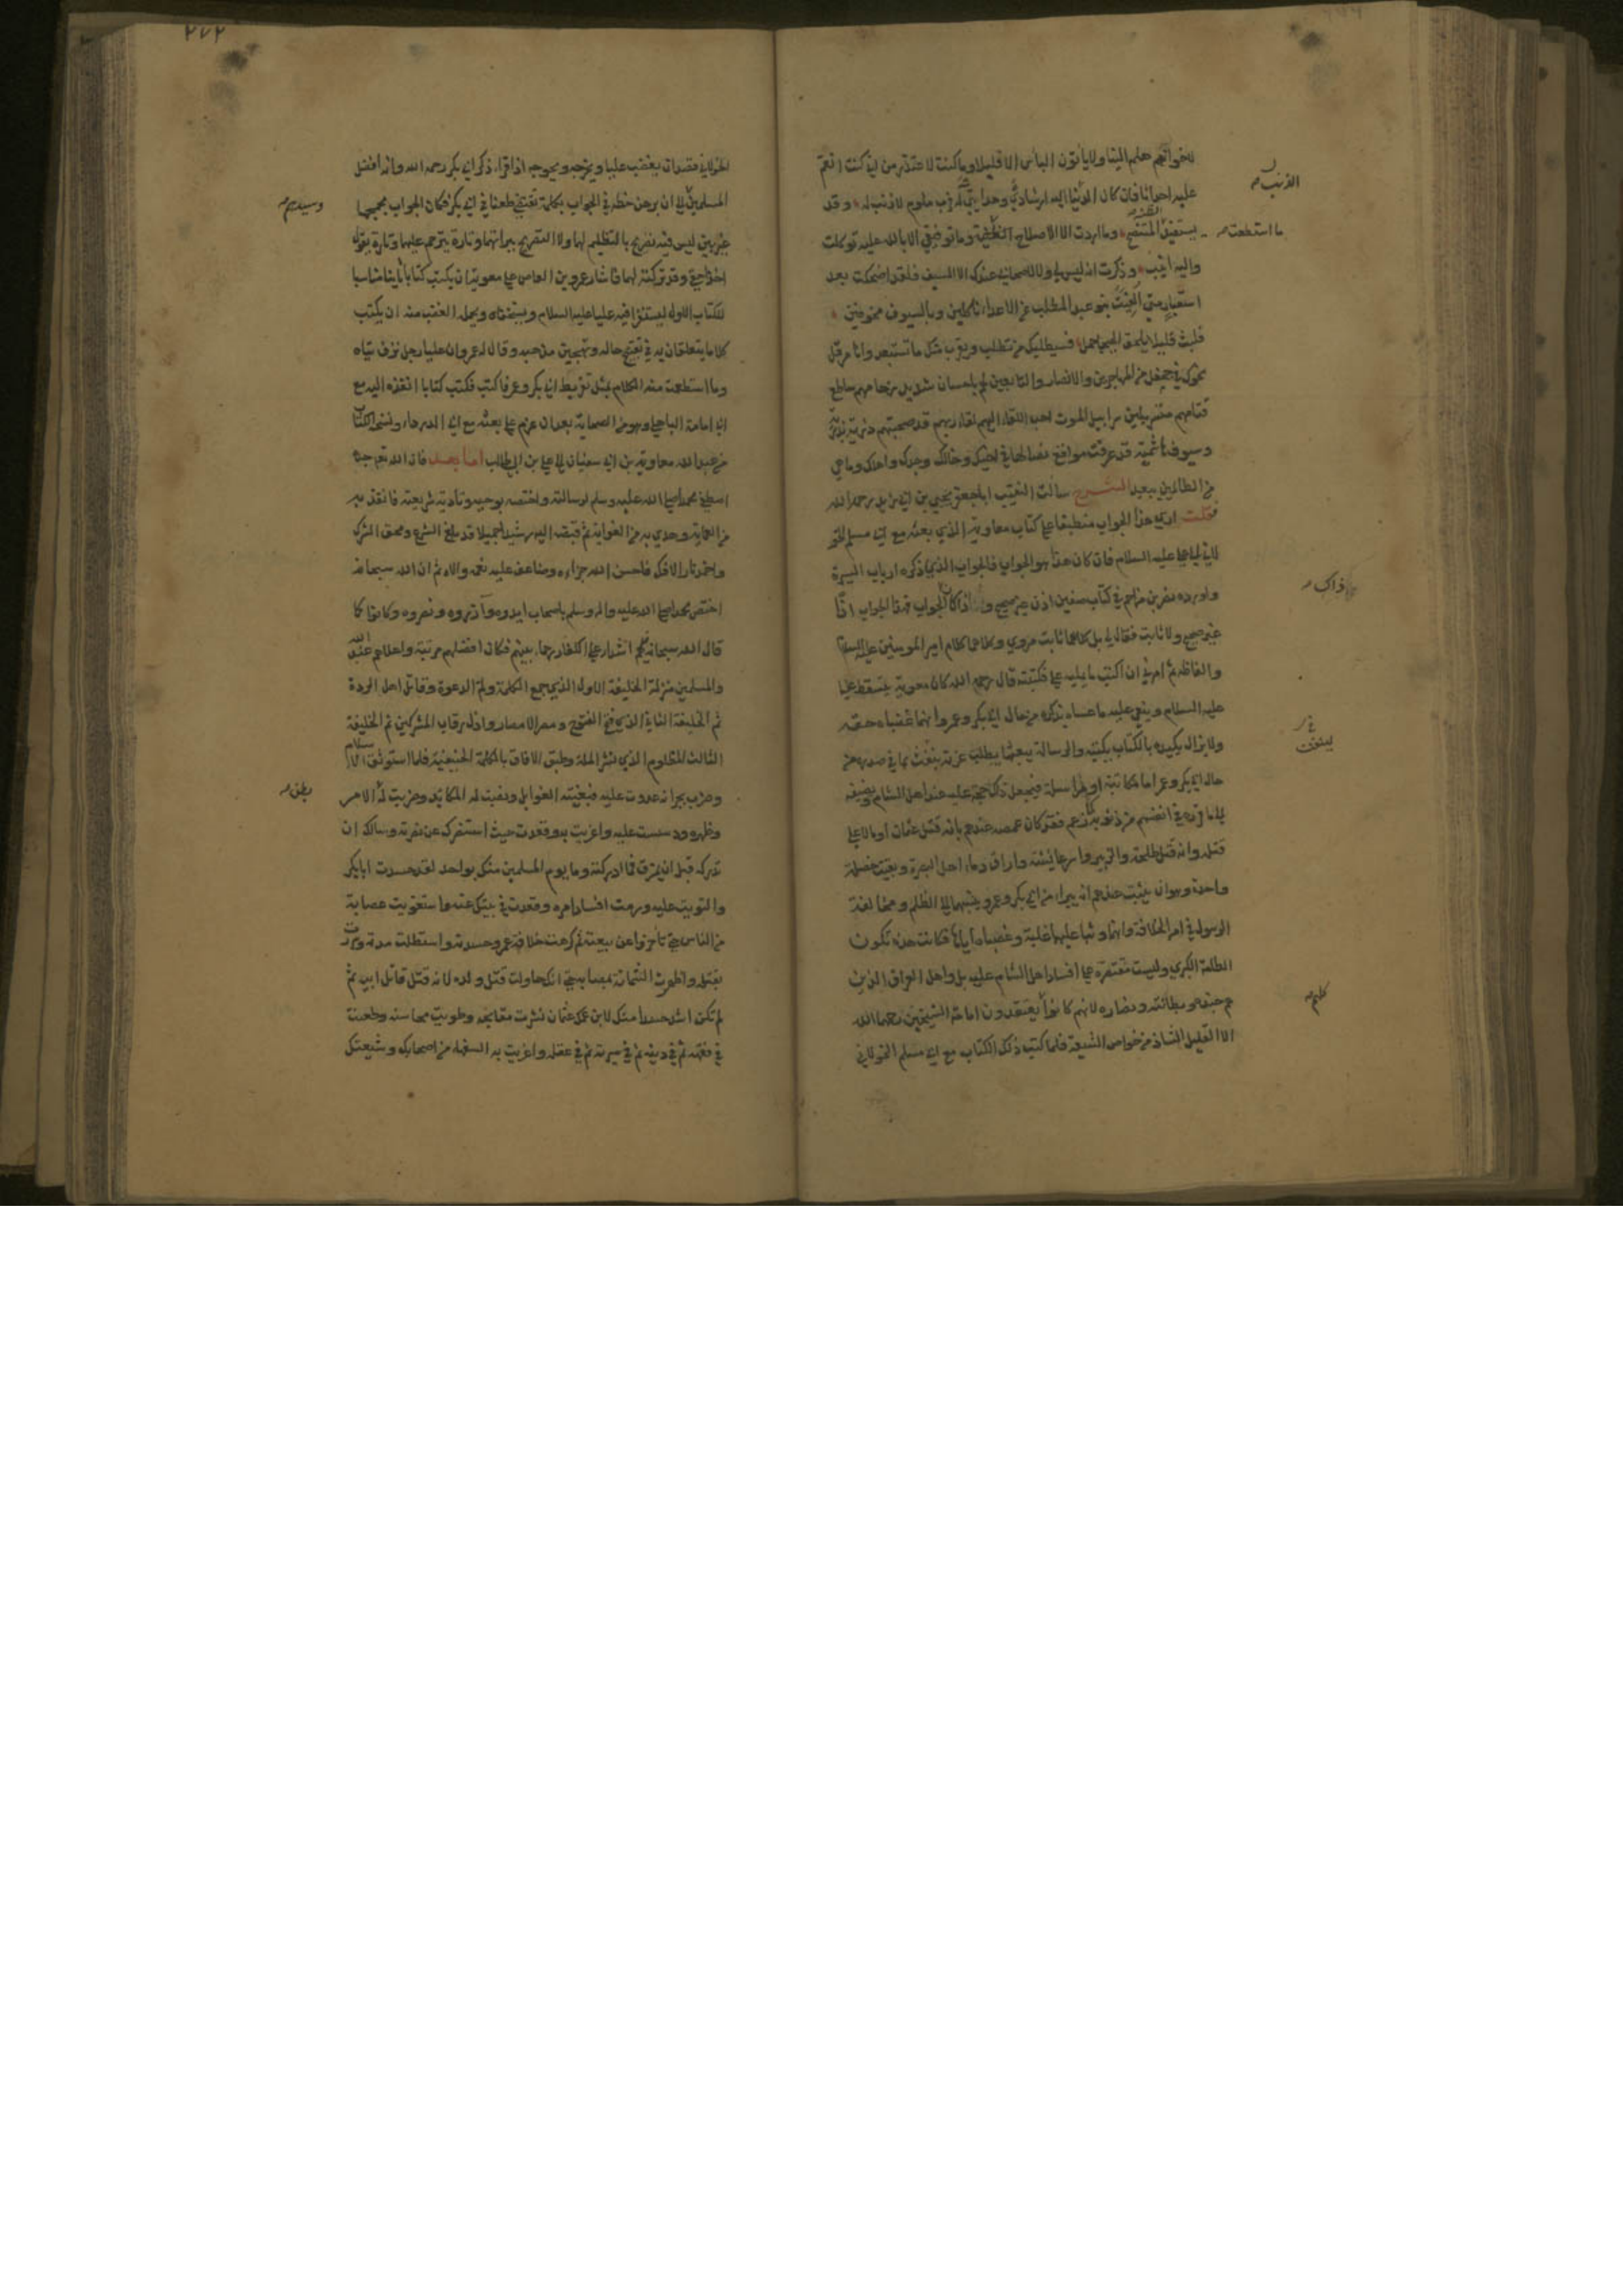 لاخوانهم هلم الينا ولا يأتون البأس الا قليلا وما كنت لاعتذر من اني كنت انقم
عليه احداثا فان كان الذنب اليه ارشادي وهدايتي له فرب ملوم لا ذنب له وقد
يستفيد الظنة المتنصح وما اردت الا الاصلاح ما استطعت وما توفيقي الا بالله عليه توكلت
واليه انيب وذكرت انه ليس لي ولا لاصحابي عندك الا السيف فلقد اضحكت بعد
استعبار متى الفيت بنو عبد المطلب عن الاعداء ناكلين وبالسيوف مخوفين
فلبث قليلا يلحق الهيجا حمل فسيطلبك من تطلب ويقرب منك ما تستبعد وانا مرقل
نحوك في جحفل من المهاجرين والانصار والتابعين لهم باحسان شديد زحامهم ساطع
قتامهم متسربلين سرابيل الموت احب اللقاء اليهم لقاء ربهم قد صحبتهم ذرية بدرية
وسيوف هاشمية قد عرفت مواقع نصالها في اخيك وخالك وجدك واهلك وما هي
من الظالمين ببعيد الشرح سالت النقيب ابا جعفر يحيى بن ابي زيد رحمه الله
فقلت ارى هذا الجواب منطبقا على كتاب معاوية الذي بعثه مع ابي مسلم الخو
لاني الى علي عليه السلام فان كان هذا هو الجواب فالجواب الذي ذكره ارباب السيرة
واورده نصر بن مزاحم في كتاب صفين اذن غير صحيح وان كان ذاك الجواب فهذا الجواب اذا
غير صحيح ولا ثابت فقال لي بل كلاهما ثابت مروي وكلاهما كلام امير المومنين عليه السلام
والفاظه ثم امرني ان اكتب ما يمليه علي فكتبته قال رحمه الله كان معوية يتسقط عليا
عليه السلام وينعى عليه ما عساه يذكره من حال ابي بكر وعمر وانهما غصباه حقه
ولا يزال يكيده بالكتاب يكتبه والرسالة يبعثها يطلب غرته لينفث بما في صدره من
حال ابي بكر وعمر اما مكاتبة او مراسلة فيجعل ذلك حجة عليه عند اهل الشام ويضيفه
الى ما قرره في انفسهم من ذنوبه كما زعم فقد كان غمصه عندهم بانه قتل عثمان او مالا على
قتله وانه قتل طلحة والزبير واسر عائشة واراق دماء اهل البصرة وبقيت خصلة
واحدة وهو ان يثبت عندهم انه يبرا من ابي بكر وعمر وينسبهما الى الظلم ومخالفة
الرسول في امر الخلافة وانهما وثبا عليها غلبة وغصباه اياها فكانت هذه تكون
الطامة الكبرى وليست مقتصرة على افساد اهل الشام عليه بل واهل العراق الذين
هم جنده وبطانته وانصاره لانهم كانوا يعتقدون امامة الشيخين رحمهما الله
الا القليل الشاذ من خواص الشيعة فلما كتب ذلك الكتاب مع ابي مسلم الخولاني
الذنب
ما استطعت
ذاك
لينفث
كلهم
٢٧٢
الخولاني قصد ان يغضب عليا ويحرجه ويحوجه اذا قرا ذكر ابي بكر رحمه الله وانه افضل
المسلمين الى ان يرهن خطه في الجواب بكلمة تقتضي طعنا في ابي بكر فكان الجواب مجمجما
غير بين ليس فيه تصريح بالتظليم لهما ولا التصريح ببرائتهما وتارة يترحم عليهما وتارة يقول
اخذا حقي وقد تركته لهما فاشار عمرو بن العاص على معوية ان يكتب كتابا ثانيا مناسبا
للكتاب الاول ليستفزا فيه عليا عليه السلام ويستخفاه ويحمله الغضب منه ان يكتب
كلاما يتعلقان به في تقبيح حاله وتهجين مذهبه وقال له عمرو ان عليا رجل نزق تياه
وما استطعمت منه الكلام بمثل تقريظ ابي بكر وعمر فاكتب فكتب كتابا انفذه اليه مع
ابي امامة الباهلي وهو من الصحابة بعد ان عزم على بعثه مع ابي الدرداء ونسخة الكتاب
من عبد الله معاوية بن ابي سفيان الى علي بن ابي طالب اما بعد فان الله تعالى جده
اصطفى محمدا صلى الله عليه وسلم لرسالته واختصه بوحيه وتادية شريعته فانقذ به
من العماية وهدى به من الغواية ثم قبضه اليه رشيدا حميدا قد بلغ الشرع ومحق الشرك
واخمد نار الافك فاحسن الله جزاءه وضاعف عليه نعمه والاءه ثم ان الله سبحانه
اختص محمدا صلى الله عليه واله وسلم باصحاب ايدوه وآزروه ونصروه وكانوا كما
قال الله سبحانه لهم اشداء على الكفار رحماء بينهم فكان افضلهم مرتبة واعلاهم عند الله
والمسلمين منزلة الخليفة الاول الذي جمع الكلمة ولم الدعوة وقاتل اهل الردة
ثم الخليفة الثاني الذي فتح الفتوح ومصر الامصار واذل رقاب المشركين ثم الخليفة
الثالث المظلوم الذي نشر الملة وطبق الافاق بالكلمة الحنيفية فلما استوثق الاسلام
وضرب بجرانه عدوت عليه فبغيته الغوايل ونصبت له المكايد وضربت له الامر
وظهره ودسست عليه واغريت به وقعدت حيث استنصرك عن نصرته وسالك ان
تدركه قبل ان يمزق فما ادركته وما يوم المسلمين منك بواحد لقد حسدت ابا بكر
والتويت عليه ورمت افساد امره وقعدت في بيتك عنه واستغويت عصابة
من الناس حتى تأخروا عن بيعته ثم كرهت خلافة عمر وحسدته واستطلت مدته وسررت
بقتله واظهرت الشماتة بمصابه حتى انك حاولت قتل ولده لانه قتل قاتل ابيه ثم
لم تكن اشد حسدا منك لابن عمك عثمان نشرت مقابحه وطويت محاسنه وطعنت
في فقهه ثم في دينه ثم في سيرته ثم في عقله واغريت به السفهاء من اصحابك وشيعتك
بطن